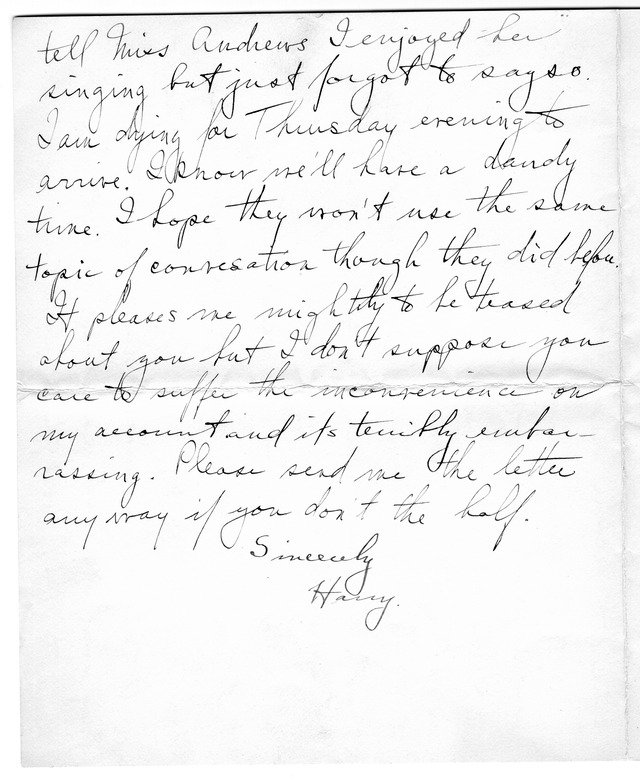 tell Miss Andrews I enjoyed her
singing but just forgot to say so.
I am dying for Thursday evening to
arrive. I know we'll have a dandy
time. I hope they won't use the same
topic of convesation though they did before.
It pleases me mightily to be teased
about you but I don't suppose you
care to suffer the inconvenience on
my account and its terribly embar-
rassing. Please send me the letter
anyway if you don't the half.
Sincerely
Harry.